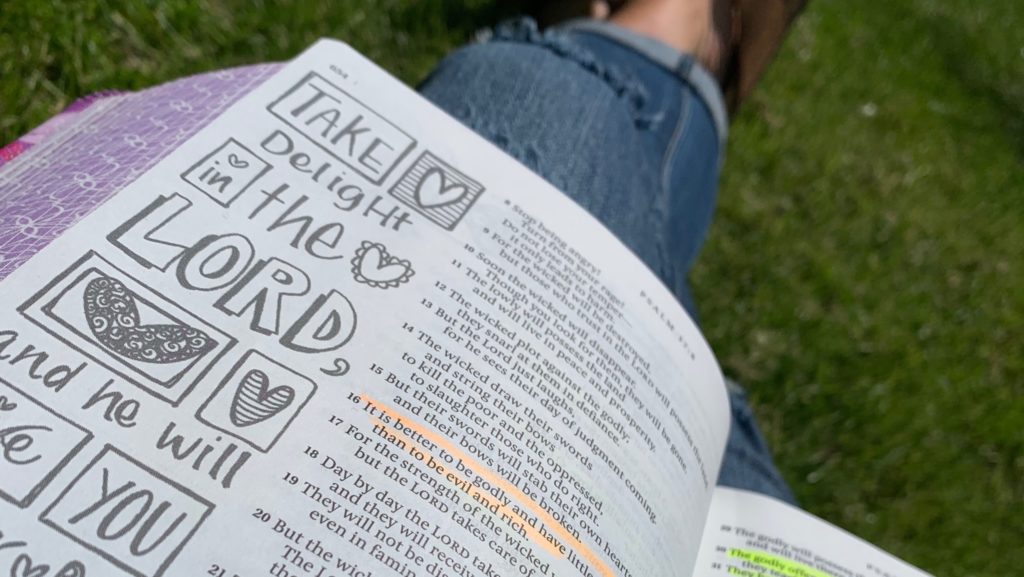 TAKE
Delight
in the
LORD,
and he will
YOU
PSALM 37:8
8 Stop being angry!
Turn from your rage!
Do not lose your temper—
it only leads to harm.
9 For the wicked will be destroyed,
but those who trust in the LORD will possess the land.
10 Soon the wicked will disappear.
Though you look for them, they will be gone.
11 The lowly will possess the land
and will live in peace and prosperity.
12 The wicked plot against the godly;
they snarl at them in defiance.
13 But the Lord just laughs,
for he sees their day of judgment coming.
14 The wicked draw their swords
and string their bows
to kill the poor and the oppressed,
to slaughter those who do right.
15 But their swords will stab their own hearts,
and their bows will be broken.
16 It is better to be godly and have little
than to be evil and rich.
17 For the strength of the wicked
but the LORD takes care of
18 Day by day the LORD
and they will receive
19 They will not be
even in
20 But the
The
21
29 The godly will
and will live
30 The godly
they
31 They